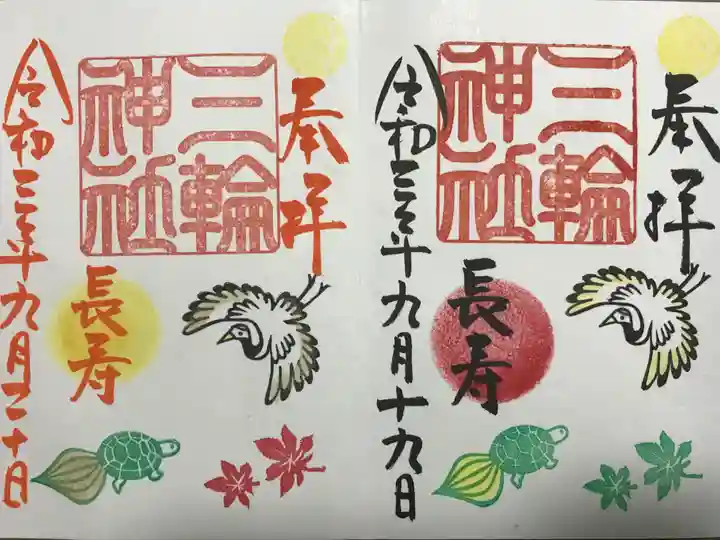 奉拝
三輪
神社
長寿
令和三年九月十九日
奉拝
三輪
神社
長寿
令和三年九月二十日